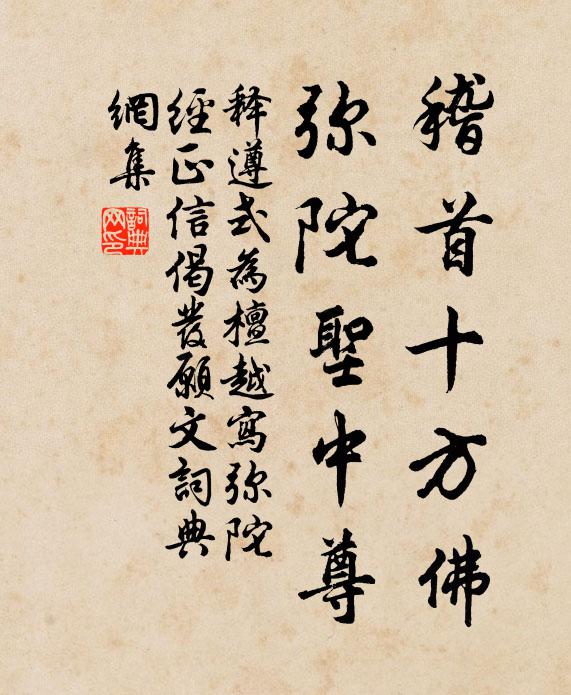 稽首十方佛
弥陀聖中尊
释遵式為檀越寫弥陀
經正信偈發願文詞典
網集
詞典网印